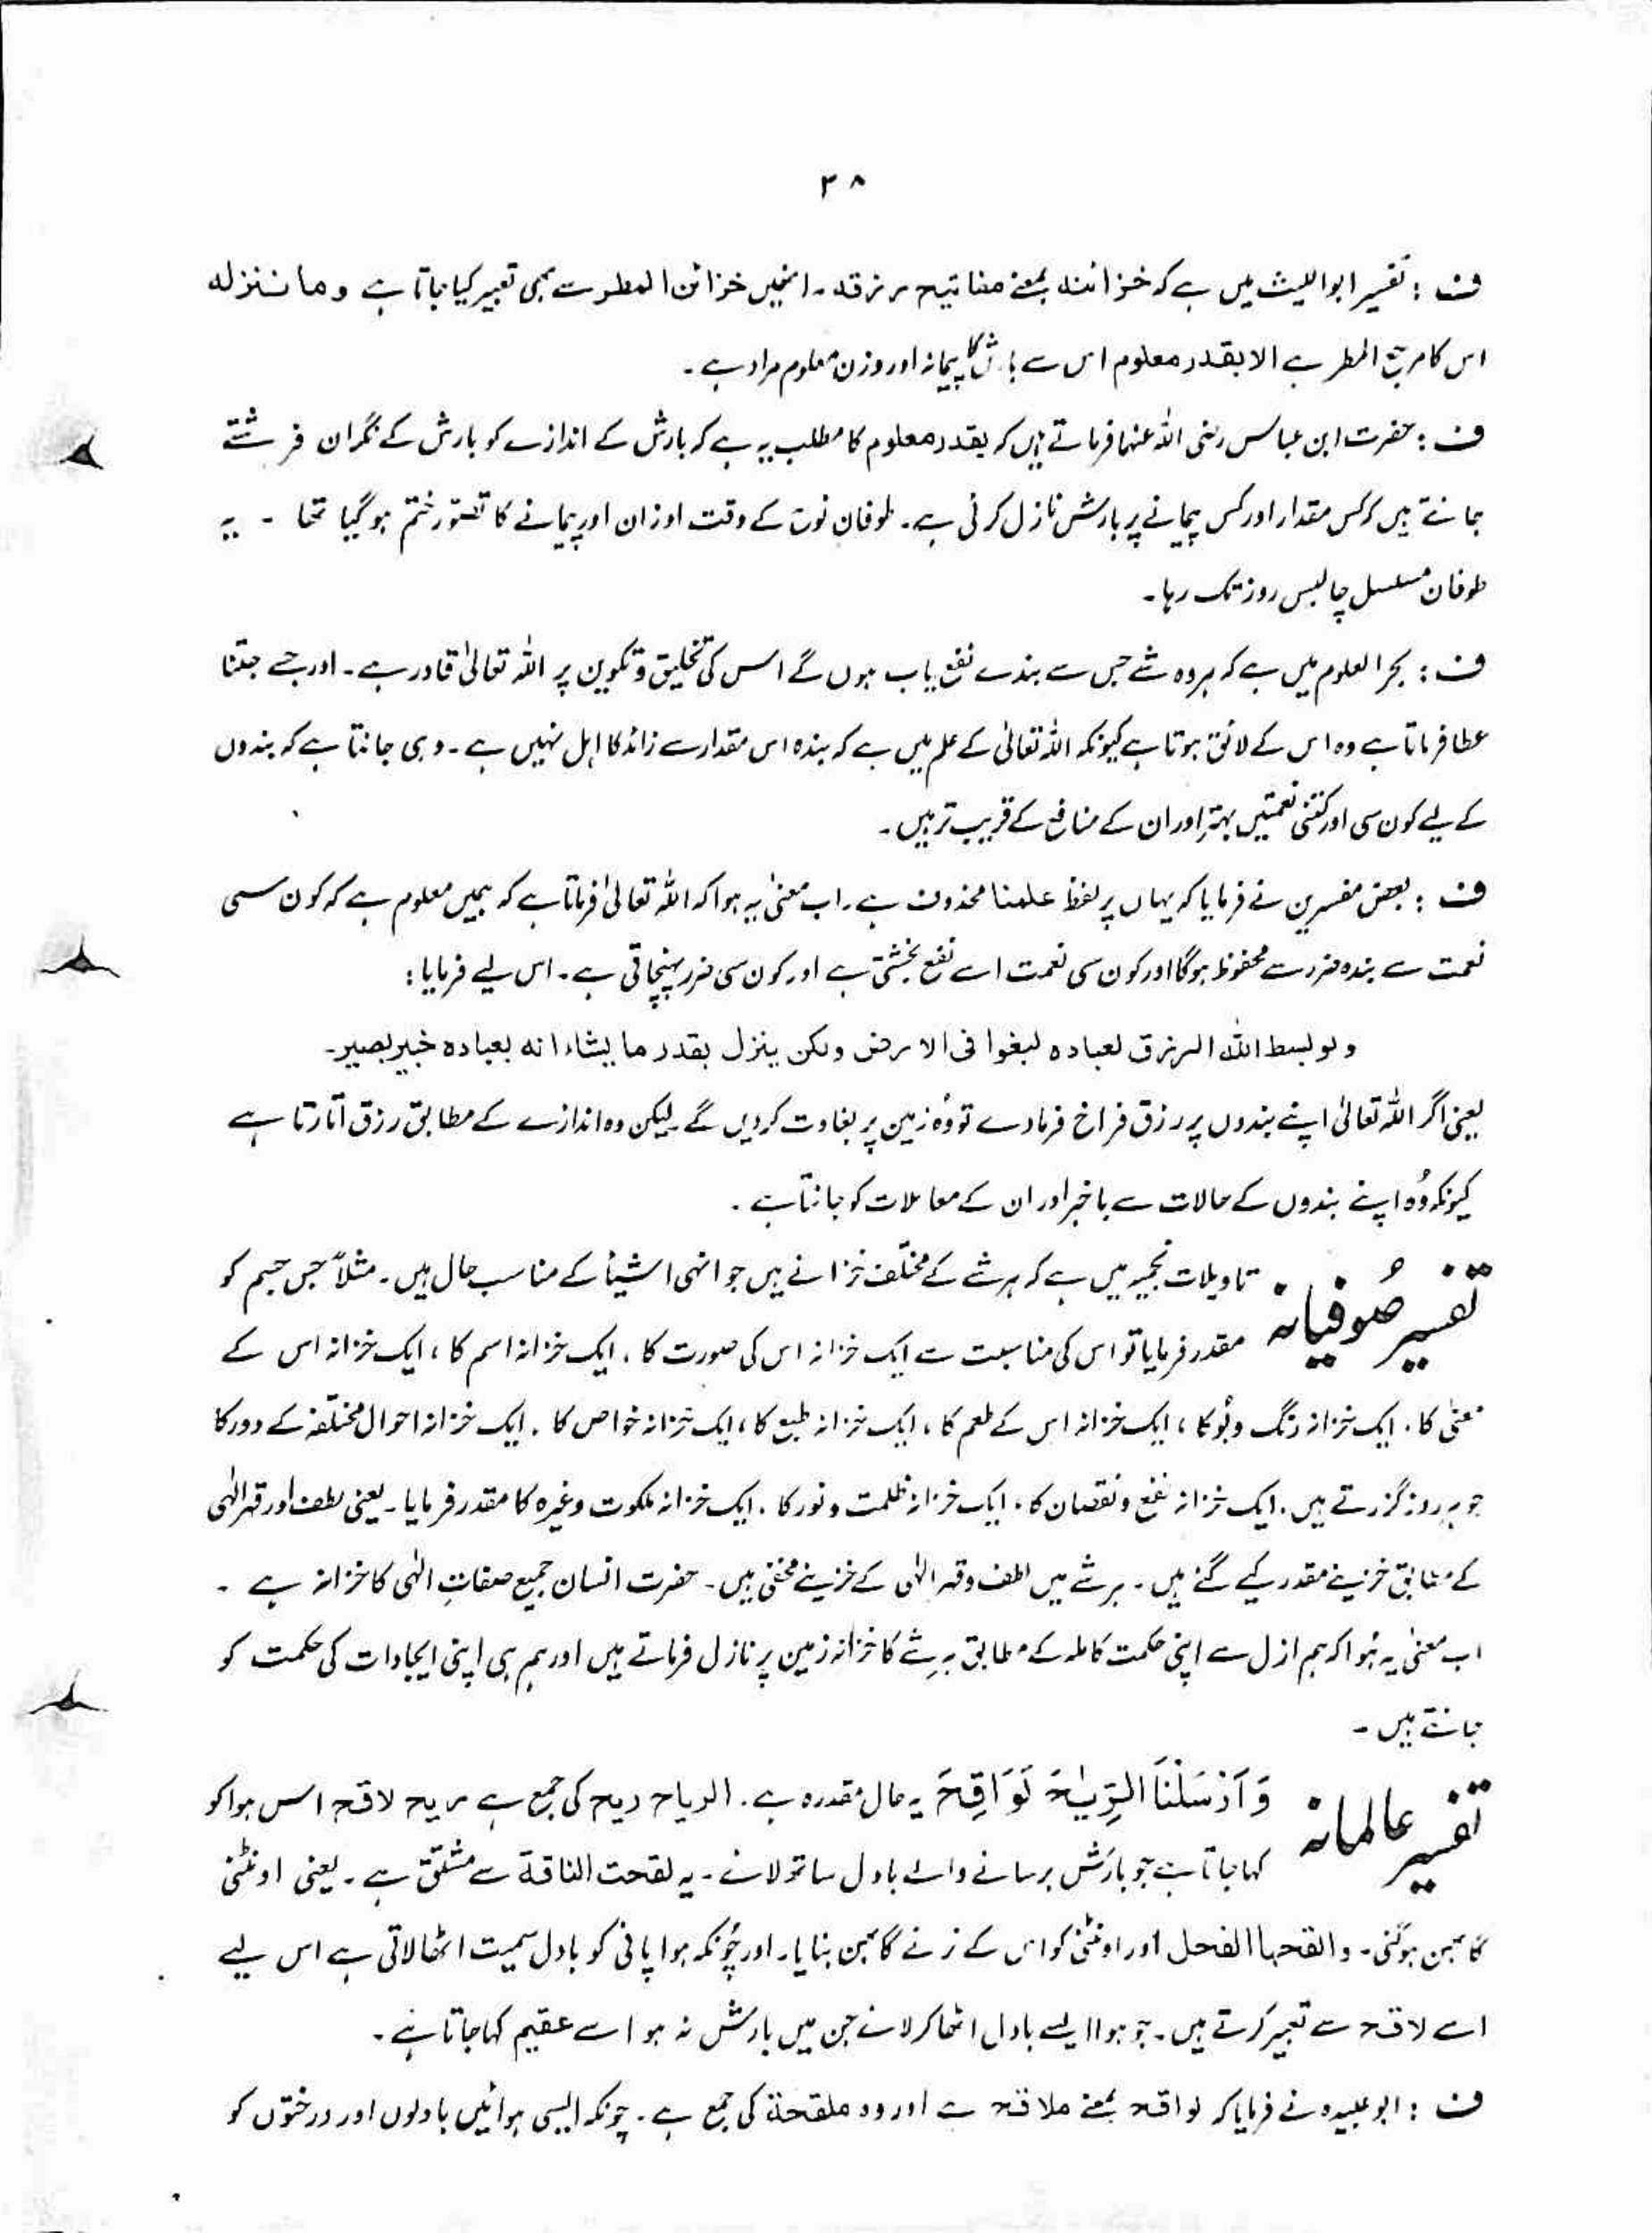 ۳۸
ف : تفسیر ابواللیث میں ہے کہ خزائنہ بمعنے مفاتیح رزقہ ۔ انہیں خزائن المطر سے بھی تعبیر کیا جاتا ہے وما ننزلہ
اس کا مرجع المطر ہے الا بقدر معلوم اس سے بارش کا پیمانہ اور وزن معلوم مراد ہے ۔
ف : حضرت ابن عباس رضی اللہ عنہما فرماتے ہیں کہ بقدر معلوم کا مطلب یہ ہے کہ بارش کے اندازے کو بارش کے نگران فرشتے
جانتے ہیں کہ کس مقدار اور کس پیمانے پر بارش نازل کرنی ہے ۔ طوفان نوح کے وقت اوزان اور پیمانے کا تصوّر ختم ہو گیا تھا ۔ یہ
طوفان مسلسل چالیس روز تک رہا ۔
ف : بحر العلوم میں ہے کہ ہر وہ شے جس سے بندے نفع یاب ہوں گے اس کی تخلیق و تکوین پر اللہ تعالیٰ قادر ہے ۔ اور جسے جتنا
عطا فرماتا ہے وہ اس کے لائق ہوتا ہے کیونکہ اللہ تعالیٰ کے علم میں ہے کہ بندہ اس مقدار سے زائد کا اہل نہیں ہے ۔ وہی جانتا ہے کہ بندوں
کے لیے کون سی اور کتنی نعمتیں بہتر اور ان کے منافع کے قریب تر ہیں ۔
ف : بعض مفسرین نے فرمایا کہ یہاں پر لفظ علمنا محذوف ہے ۔ اب معنیٰ یہ ہوا کہ اللہ تعالیٰ فرماتا ہے کہ ہمیں معلوم ہے کہ کون سی
نعمت سے بندہ ضرر سے محفوظ ہو گا اور کون سی نعمت اسے نفع بخشتی ہے اور کون سی ضرر پہنچاتی ہے ۔ اس لیے فرمایا :
ولو بسط اللہ الرزق لعبادہ لبغوا فی الارض ولکن ینزل بقدر ما یشاء انہ بعبادہ خبیر بصیر۔
یعنی اگر اللہ تعالیٰ اپنے بندوں پر رزق فراخ فرما دے تو وُہ زمین پر بغاوت کر دیں گے لیکن وہ اندازے کے مطابق رزق اتارتا ہے
کیونکہ وُہ اپنے بندوں کے حالات سے باخبر اور ان کے معاملات کو جانتا ہے ۔
تفسیر صُوفیانہ تاویلات نجمیہ میں ہے کہ ہر شے کے مختلف خزانے ہیں جو انہی اشیأ کے مناسب حال ہیں ۔ مثلاً جس جسم کو
مقدر فرمایا تو اس کی مناسبت سے ایک خزانہ اس کی صورت کا ، ایک خزانہ اسم کا ، ایک خزانہ اس کے
معنیٰ کا ، ایک خزانہ رنگ و بُو کا ، ایک خزانہ اس کے طعم کا ، ایک خزانہ طبع کا ، ایک خزانہ خواص کا ، ایک خزانہ احوال مختلفہ کے دور کا
جو ہر روز گزرتے ہیں ، ایک خزانہ نفع و نقصان کا ، ایک خزانہ ظلمت و نور کا ، ایک خزانہ ملکوت وغیرہ کا مقدر فرمایا ۔ یعنی لطف اور قہر الٰہی
کے مطابق خزینے مقدر کیے گئے ہیں ۔ ہر شے میں لطف و قہر الٰہی کے خزینے مخفی ہیں ۔ حضرت انسان جمیع صفاتِ الٰہی کا خزانہ ہے ۔
اب معنیٰ یہ ہُوا کہ ہم ازل سے اپنی حکمت کاملہ کے مطابق ہر شے کا خزانہ زمین پر نازل فرماتے ہیں اور ہم ہی اپنی ایجادات کی حکمت کو
جانتے ہیں ۔
تفسیر عالمانہ وَ اَرْسَلْنَا الرِّیٰحَ لَوَاقِحَ یہ حال مقدرہ ہے ۔ الریاح ریح کی جمع ہے ریح لاقح اس ہوا کو
کہا جاتا ہے جو بارش برسانے والے بادل ساتھ لائے ۔ یہ لقحت الناقۃ سے مشتق ہے ۔ یعنی اونٹنی
گابھن ہو گئی ۔ والقحہا الفحل اور اونٹنی کو اس کے نر نے گابھن بنایا ۔ اور چُونکہ ہوا پانی کو بادل سمیت اٹھا لاتی ہے اس لیے
اسے لاقح سے تعبیر کرتے ہیں ۔ جو ہوا ایسے بادل اٹھا کر لائے جن میں بارش نہ ہو اسے عقیم کہا جاتا ہے ۔
ف : ابو عبیدہ نے فرمایا کہ لواقح بمعنے ملاقح ہے اور وہ ملقحۃ کی جمع ہے ۔ چونکہ ایسی ہوائیں بادلوں اور درختوں کو